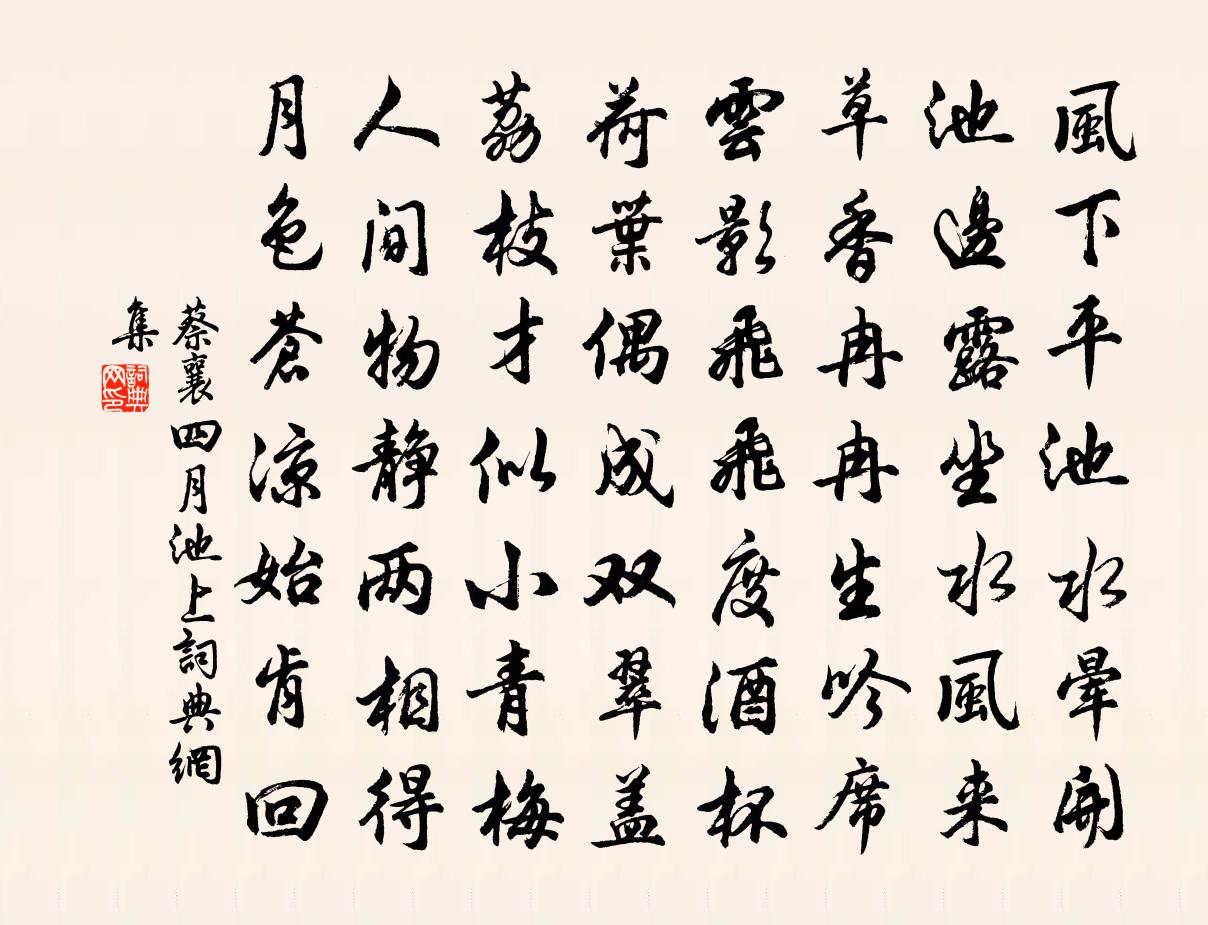 風下平池水暈開
池邊露坐水風来
草香冉冉生吟席
雲影飛飛度酒杯
荷葉偶成双翠盖
荔枝才似小青梅
人间物静两相得
月色蒼涼始肯回
蔡襄四月池上詞典網
集
詞典网印